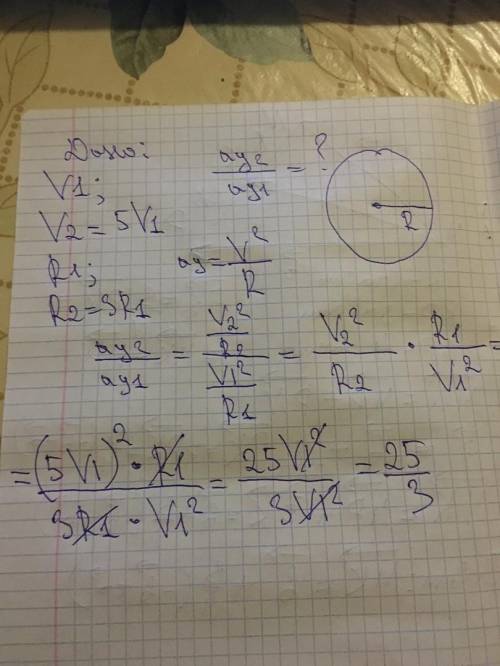 Дано:
V1;
V2 = 5V1
R1;
R2 = 3R1
ay2/ay1 = ?
R
ay = V²/R
ay2/ay1 = (V2²/R2)/(V1²/R1) = V2²/R2 · R1/V1² =
= (5V1)² · R1/3R1 · V1² = 25V1²/3V1² = 25/3